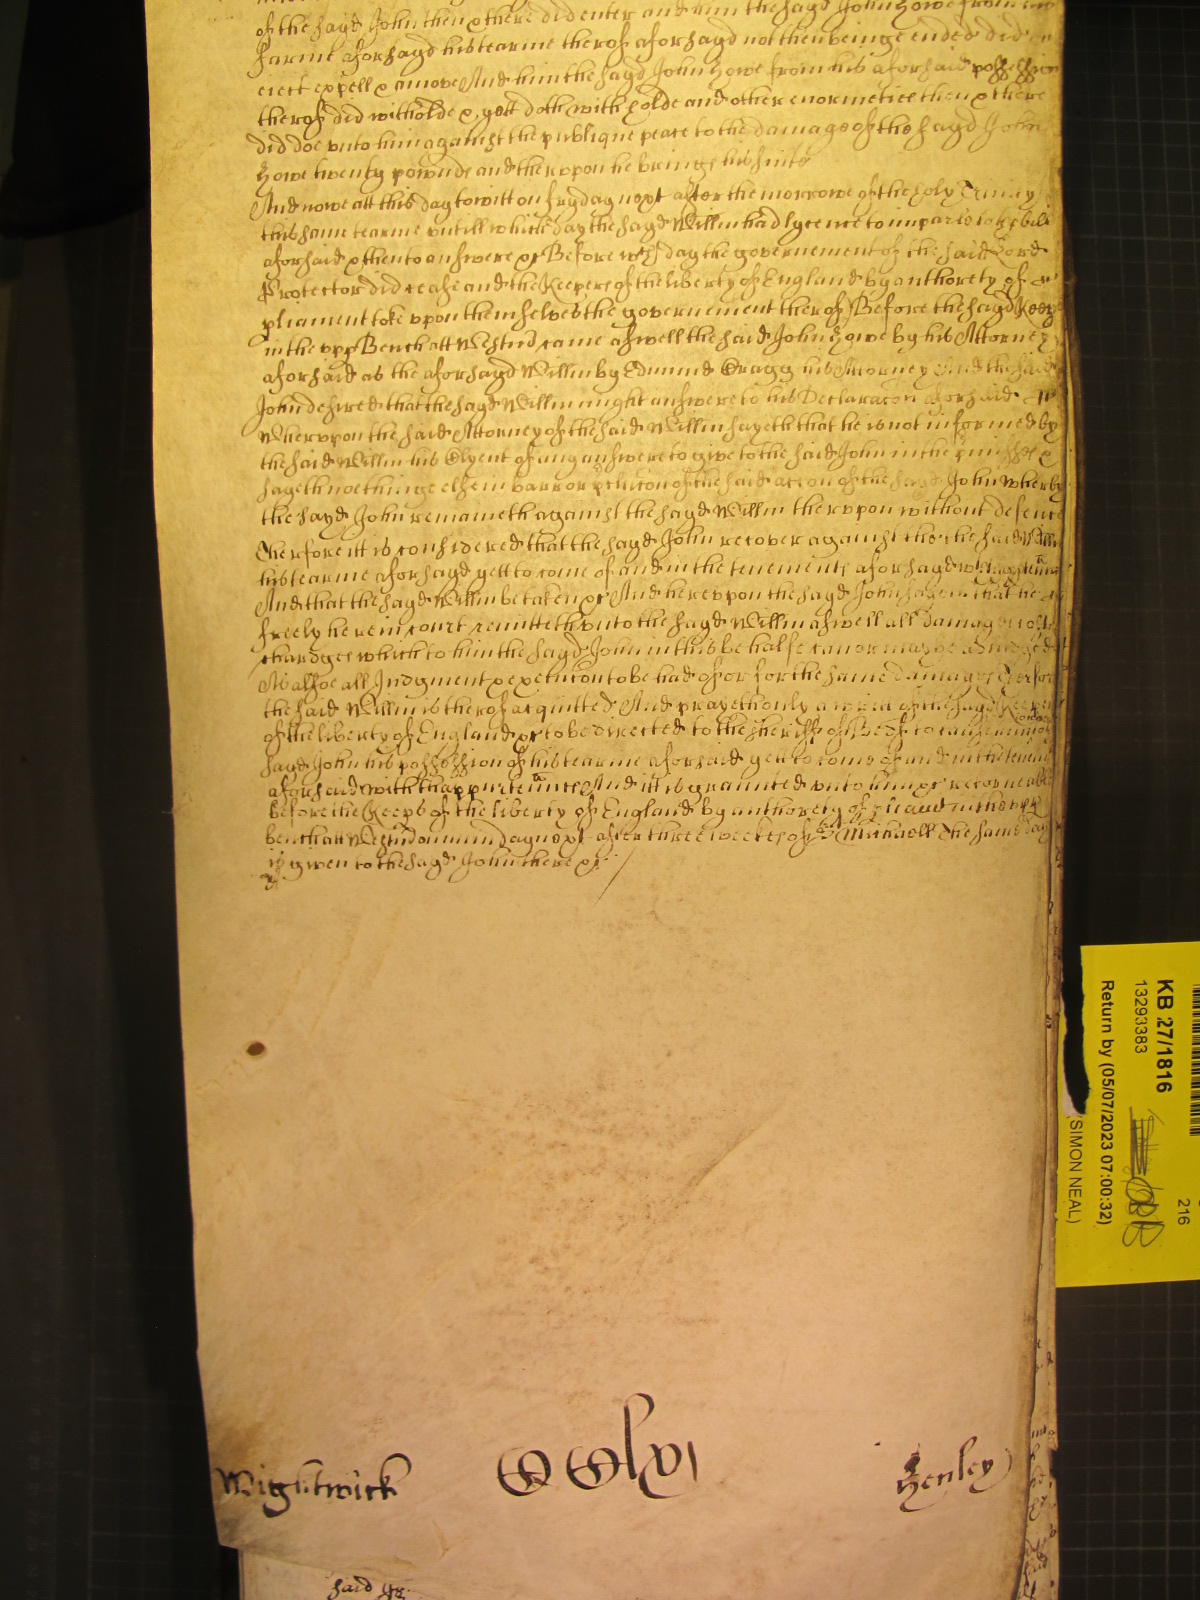 of the sayd John then & there did enter and him the sayd John Howe from his
farme aforsayd his tearme therof aforsayd not then beinge ended did
eject expell & amove And him the sayd John Howe from his aforsaid possession
therof did witholde & yett doth withholde and other enormeties then & there
did doe unto him against the publique peace to the damage of the sayd John
Howe twenty pownds and therupon he brings his suite
And nowe att this day to witt on fryday next after the morrowe of the holy Trinity
this same tearme untill which day the sayd Willm had lycence to imparle to the bill
aforsaid & then to answere &c Before wch day the governement of the said Lord
Protector did cease and the Keepers of the liberty of England by authorety of
pliament toke upon themselves the governement therof Before the sayd Keep
in the upp Bench att Westmr came aswell the said John Howe by his Attorney
aforsaid as the aforsayd Willm by Edmund Gragg his Attorney And the said
John desired that the sayd Willm might answere to his Declaracon aforsaid &c
Wherupon the said Attorney of the said Willm sayeth that he is not informed by
the said Willm his Clyent of any answere to give to the said John in the pmisses &
sayeth noethinge else in barr or pclucon of the said accon of the sayd John Wherby
the sayd John remaineth against the sayd Willm therupon without defence
Therfore itt is considered that the sayd John recover against the said Willm
his tearme aforsayd yett to come of and in the tenements aforsayd with thapptenncs
And that the sayd Willm be taken &c And hereupon the sayd John sayeth that he
freely here in court remitteth unto the sayd Willm aswell all damages costs
chardges which to him the sayd John in this behalfe can or may be adiudged
As alsoe all Judgment & execucon to be had of or for the same damages Therfore
the said Willm is therof acquitted And prayeth only a writt of the sayd Keepers
of the liberty of England &c to be directed to the sheriff of Bedf to cause
sayd John his possession of his tearme aforsaid yett to come of and in the tenemts
aforsaid with thappurtenncs And itt is graunted unto him &c retorneable
before the Keeps of the liberty of England by authorety of pliamt in the upp
bench att Westmr on munday next after three weekes of St Michaell The same day
is given to the sayd John there &c
Wightwick CClxi Henley
said &c
KB 27/1816
13293383
Return by (05/07/2023 07:00:32)
(SIMON NEAL)
216